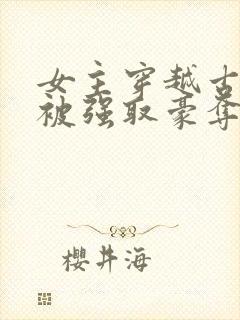 女主穿越古
被强取豪夺
櫻井海